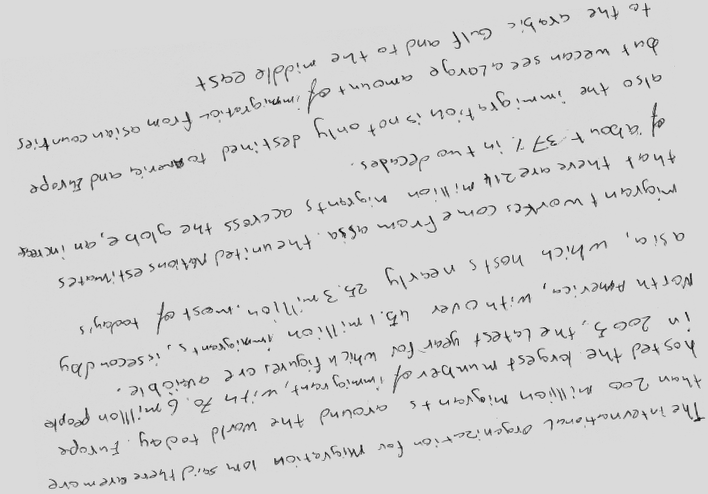 The international Organization for Migration IOM said there are more
than 200 million migrants around the world today. Europe
hosted the largest mumber of immigrant, with 70.6 million people
in 2005, the latest year for which figures are avaible.
North America, with over 45.1 million immigrants, is second by
asia, which hosts nearly 25.3 million. most of today's
migrant workes come from asia. the united Nations estimates
that there are 214 million migrants accress the globe, an increase
of about 37% in two decades.
also the immigration is not only destined to America and Europe
but we can see a large amount of immigration from asian counties
to the arabic Gulf and to the middle east